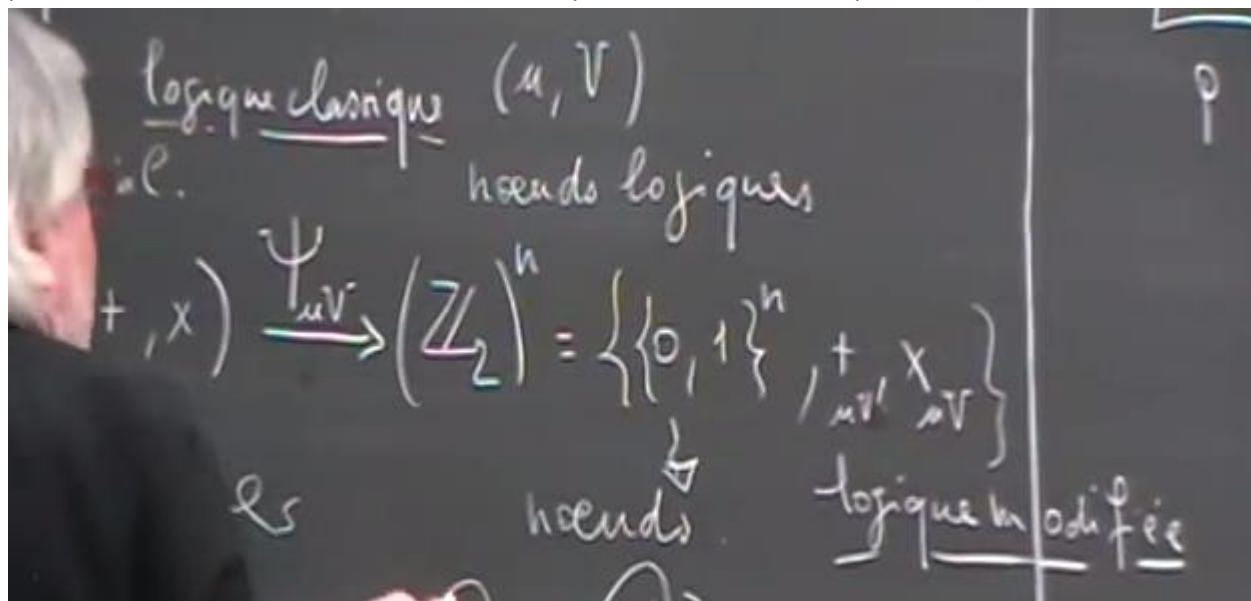 logique classique (u, V)
P
noeuds logiques
+, x) Ψ_uV → (ℤ_2)^n = {{0, 1}^n, +_uV, x_uV}
es
noeuds
logique modifée